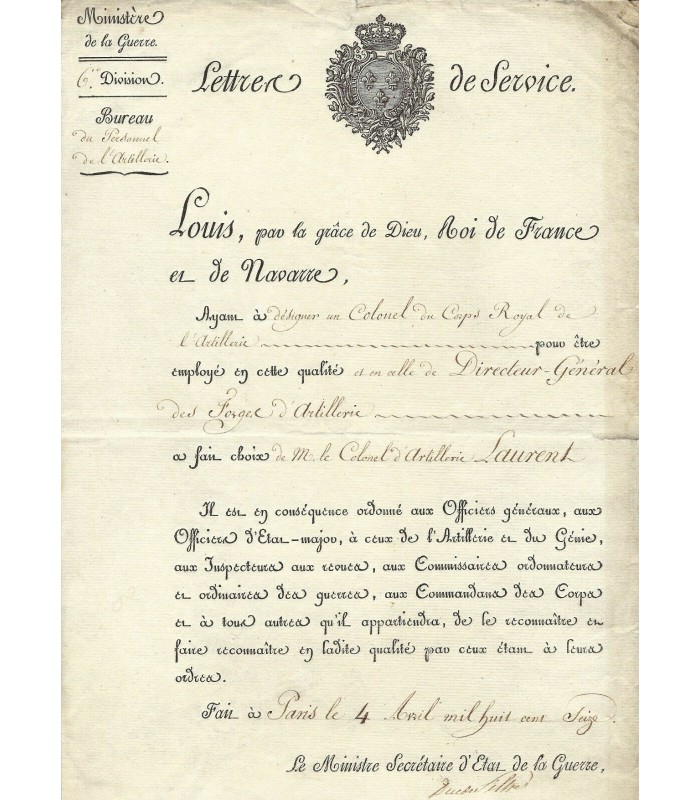 Ministère
de la Guerre.
6.e Division.
Bureau
du Personnel
de l'Artillerie.
Lettres de Service.
Louis, par la grâce de Dieu, Roi de France
et de Navarre,
Ayant à désigner un Colonel du Corps Royal de
l'Artillerie pour être
employé en cette qualité et en celle de Directeur-Général
des Forges d'Artillerie
a fait choix de M. le Colonel d'Artillerie Laurent
Il est en conséquence ordonné aux Officiers généraux, aux
Officiers d'Etat-major, à ceux de l'Artillerie et du Génie,
aux Inspecteurs aux revues, aux Commissaires ordonnateurs
et ordinaires des guerres, aux Commandans des Corps
et à tous autres qu'il appartiendra, de le reconnaître et
faire reconnaître en ladite qualité par ceux étant à leurs
ordres.
Fait à Paris le 4 Avril mil huit cent Seize.
Le Ministre Secrétaire d'Etat de la Guerre,